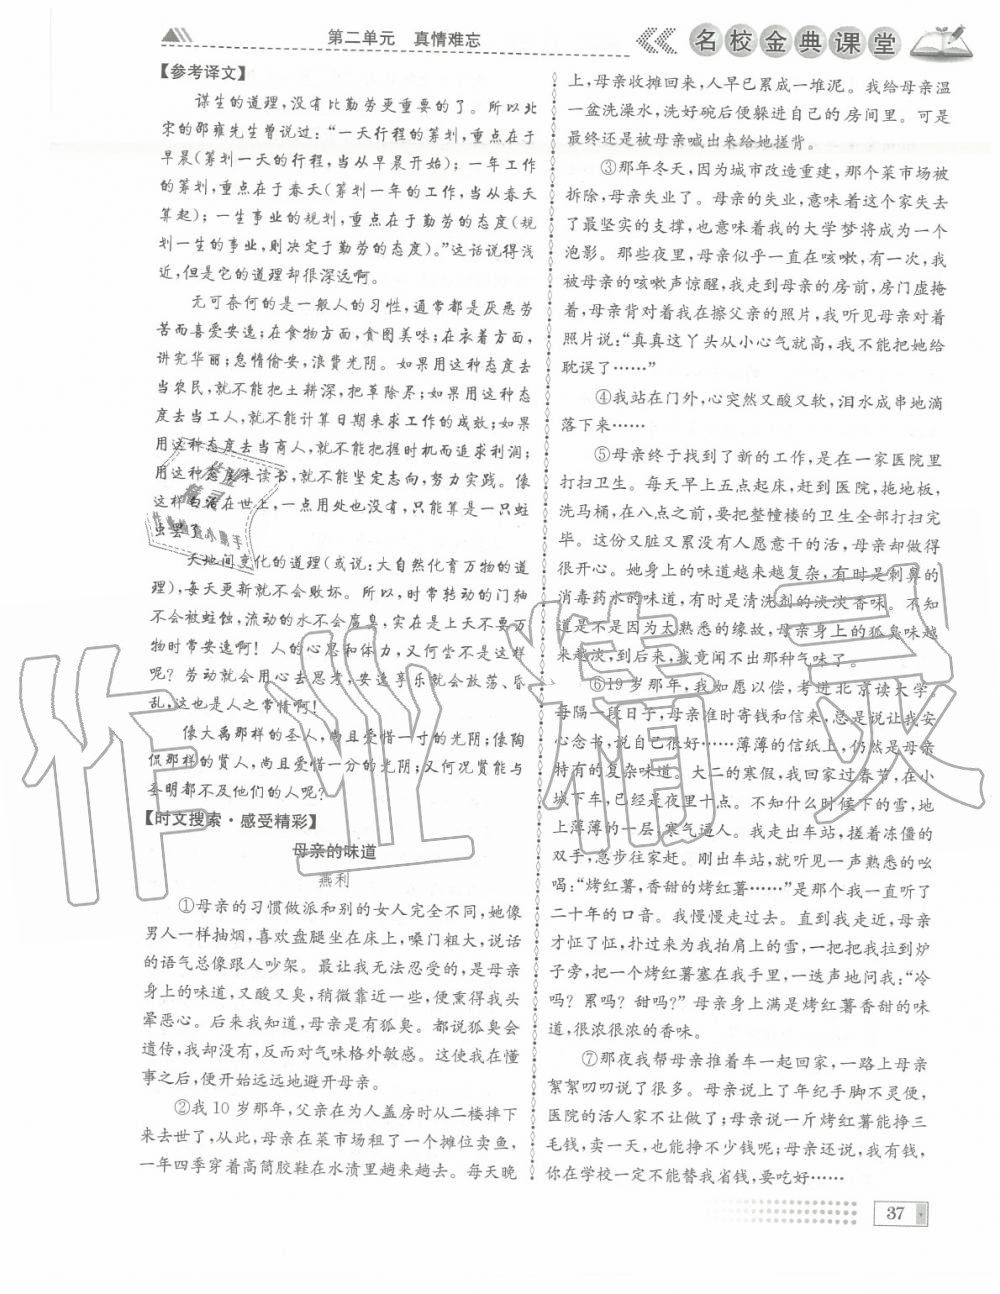 第二单元 真情难忘
名校金典课堂
【参考译文】
谋生的道理,没有比勤劳更重要的了。所以北
宋的邵雍先生曾说过:“一天行程的筹划,重点在于
早晨(筹划一天的行程,当从早晨开始);一年工作
的筹划,重点在于春天(筹划一年的工作,当从春天
算起);一生事业的规划,重点在于勤劳的态度(规
划一生的事业,则决定于勤劳的态度)。”这话说得浅
近,但是它的道理却很深远啊。
无可奈何的是一般人的习性,通常都是厌恶劳
苦而喜爱安逸;在食物方面,贪图美味;在衣着方面,
讲究华丽;怠惰偷安,浪费光阴。如果用这种态度去
当农民,就不能把土耕深,把草除尽;如果用这种态
度去当工人,就不能计算日期来求工作的成效;如果
用这种态度去当商人,就不能把握时机而追求利润;
用这种态度来读书,就不能坚定志向,努力实践。像
这样白活在世上,一点用处也没有,只能算是一只蛀
虫罢了。
天地间变化的道理(或说:大自然化育万物的道
理),每天更新就不会败坏。所以,时常转动的门轴
不会被蛀蚀,流动的水不会腐臭,实在是上天不要万
物时常安逸啊!人的心思和体力,又何尝不是这样
呢?劳动就会用心去思考,安逸享乐就会放荡、昏
乱,这也是人之常情啊!
像大禹那样的圣人,尚且爱惜一寸的光阴;像陶
侃那样的贤人,尚且爱惜一分的光阴;又何况贤能与
圣明都不及他们的人呢?
【时文搜索·感受精彩】
母亲的味道
燕利
①母亲的习惯做派和别的女人完全不同,她像
男人一样抽烟,喜欢盘腿坐在床上,嗓门粗大,说话
的语气总像跟人吵架。最让我无法忍受的,是母亲
身上的味道,又酸又臭,稍微靠近一些,便熏得我头
晕恶心。后来我知道,母亲是有狐臭。都说狐臭会
遗传,我却没有,反而对气味格外敏感。这使我在懂
事之后,便开始远远地避开母亲。
②我10岁那年,父亲在为人盖房时从二楼摔下
来去世了,从此,母亲在菜市场租了一个摊位卖鱼,
一年四季穿着高筒胶鞋在水渍里趟来趟去。每天晚
上,母亲收摊回来,人早已累成一堆泥。我给母亲温
一盆洗澡水,洗好碗后便躲进自己的房间里。可是
最终还是被母亲喊出来给她搓背。
③那年冬天,因为城市改造重建,那个菜市场被
拆除,母亲失业了。母亲的失业,意味着这个家失去
了最坚实的支撑,也意味着我的大学梦将成为一个
泡影。那几夜,母亲似乎一直在咳嗽,有一次,我
被母亲的咳嗽声惊醒,我走到母亲的房前,房门虚掩
着,母亲背对着我在擦父亲的照片,我听见母亲对着
照片说:“真真这丫头从小心气就高,我不能把她给
耽误了……”
④我站在门外,心突然又酸又软,泪水成串地滴
落下来……
⑤母亲终于找到了新的工作,是在一家医院里
打扫卫生。每天早上五点起床,赶到医院,拖地板,
洗马桶,在八点之前,要把整幢楼的卫生全部打扫完
毕。这份又脏又累没有人愿意干的活,母亲却做得
很开心。她身上的味道越来越复杂,有时是刺鼻的
消毒药水的味道,有时是清洗剂的淡淡香味。不知
道是不是因为太熟悉的缘故,母亲身上的狐臭味越
来越淡,到后来,我竟闻不出那种气味了。
⑥19岁那年,我如愿以偿,考进北京读大学,
每隔一段日子,母亲准时寄钱和信来,总是说让我安
心念书,说自己很好……薄薄的信纸上,仍然是母亲
特有的复杂味道。大二的寒假,我回家过春节,在小
城下车,已经是夜里十点。不知什么时候下的雪,地
上薄薄的一层,寒气逼人。我走出车站,搓着冻僵的
双手,急步往家赶。刚出车站,听见一声熟悉的吆
喝:“烤红薯,香甜的烤红薯……”是那个我一直听了
二十年的口音。我慢慢走过去。直到我走近,母亲
才怔了怔,扑过来为我拍肩上的雪,一把把我拉到炉
子旁,把一个烤红薯塞在我手里,一迭声地问我:“冷
吗?累吗?甜吗?”母亲身上满是烤红薯香甜的味
道,很浓很浓的香味。
⑦那夜我帮母亲推着车一起回家,一路上母亲
絮絮叨叨说了很多。母亲说上了年纪手脚不灵便,
医院的活人家不让做了;母亲说一斤烤红薯能挣三
毛钱,卖一天,也能挣不少钱呢;母亲还说,我有钱,
你在学校一定不能替我省钱,要吃好……
37
作业精灵